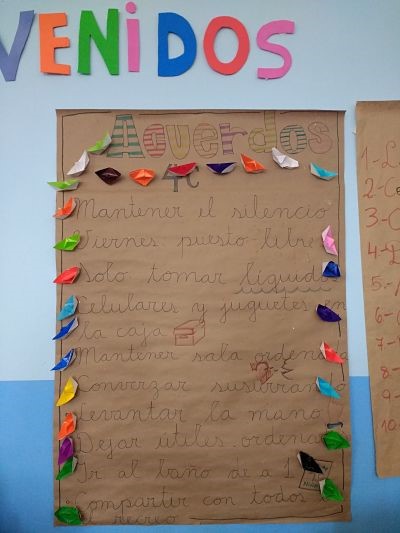 VENIDOS
Acuerdos
4C
Mantener el silencio
Viernes puesto libre
Solo tomar líquidos
Celulares y juguetes en
la caja
Mantener sala ordenada
Converzar susurrando
Levantar la mano
Dejar útiles ordena
Ir al baño de a 1
Compartir con todos
el recreo
1-L
2-C
3-C
4-L
5-
6-
7-
8-
9-
10